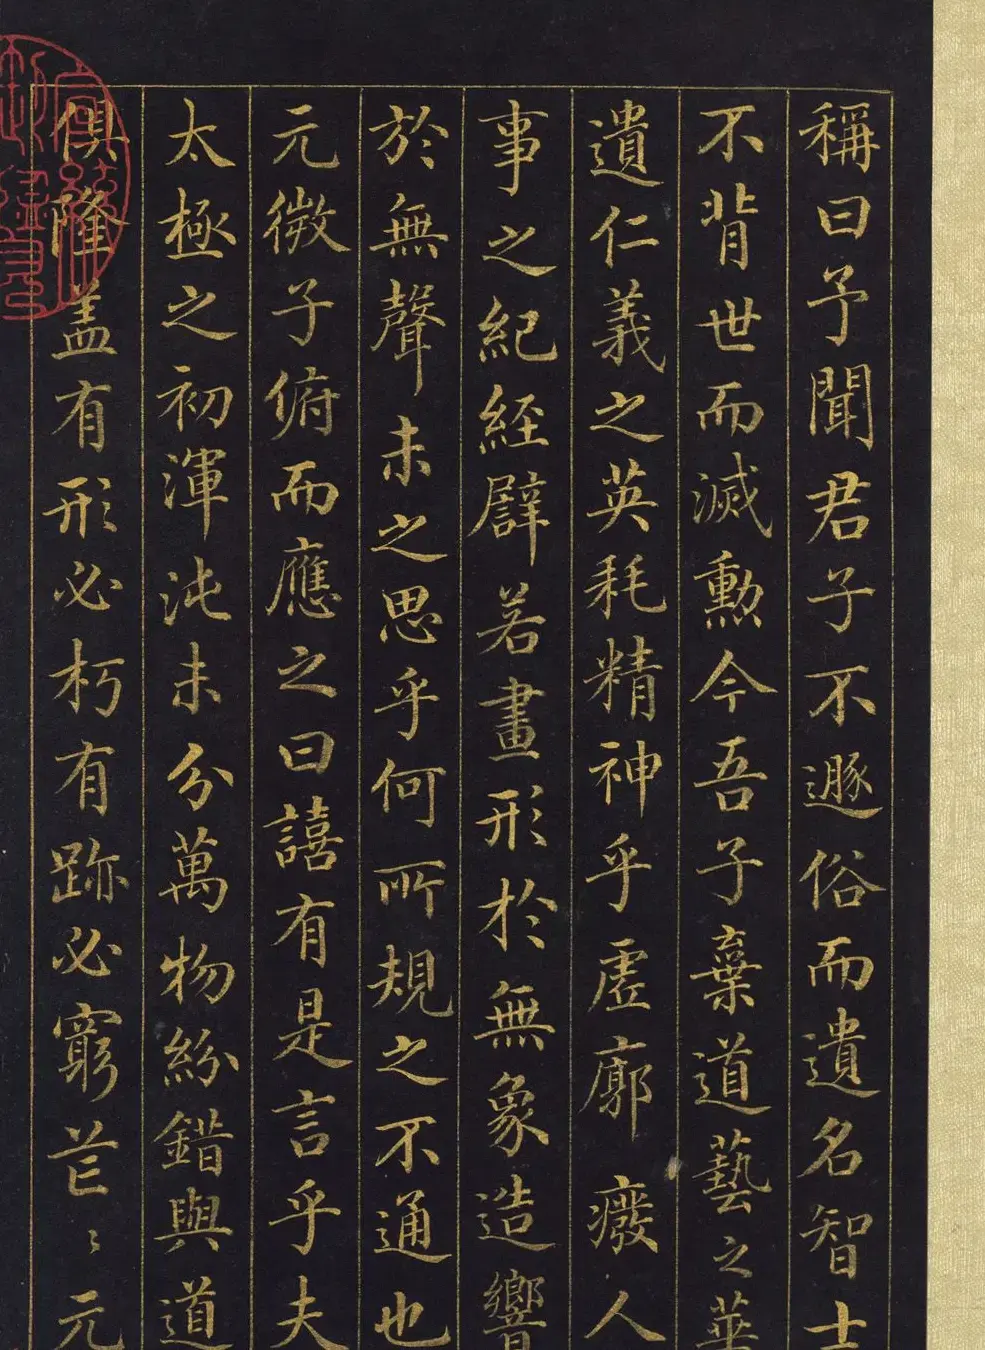 稱曰予聞君子不遯俗而遺名智士
不背世而滅勲今吾子棄道藝之華
遺仁義之英耗精神乎虛廓廢人
事之紀經譬若畫形於無象造響
於無聲未之思乎何所規之不通也
元微子俯而應之曰譆有是言乎夫
太極之初渾沌未分萬物紛錯與道
俱隆盖有形必朽有跡必窮芒〻元